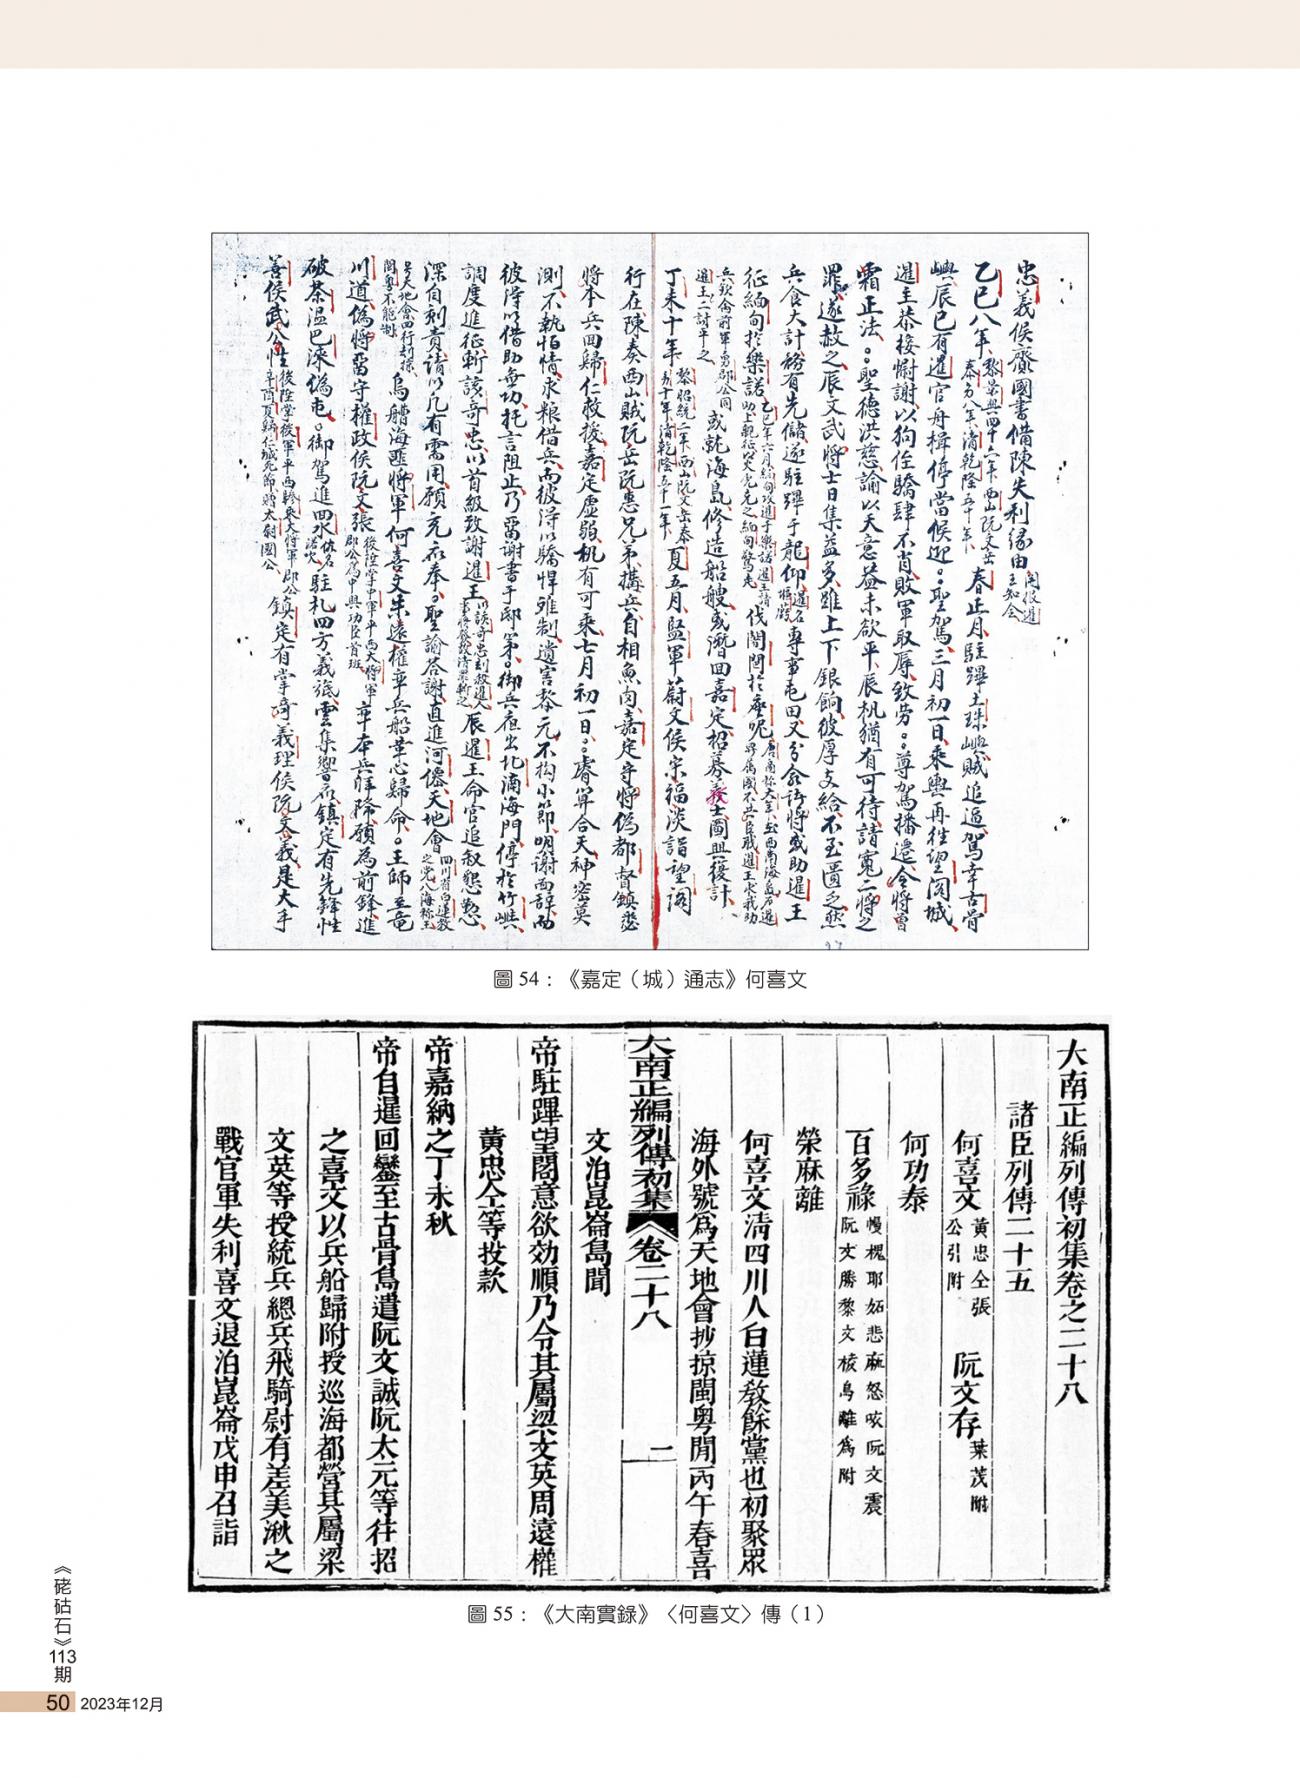 忠義侯齎國書備陳失利緣由
乙巳八年春正月駐蹕土珠嶼賊追逼駕幸古骨
嶼辰已有暹官舟楫停當候迎聖駕三月初一日乘輿再往望閣城
暹主恭接慰謝以狗侄驕肆不肖敗軍取辱致勞尊駕播遷令將曾
霜正法聖德洪慈諭以天意益未欲平辰机猶有可待請寬二將之
罪遂赦之辰文武將士日集益多雖上下銀餉彼厚支給不至匱乏然
兵食大計務有先儲遂駐蹕于龍仰專事屯田又分命諸將或助暹王
征緬甸於樂諾伐闍閭於
或就海島修造船艘或潛回嘉定招募義士圖興復計
丁未十年夏五月監軍蔚文侯宋福淡詣望閣
行在陳奏西山賊阮岳阮惠兄弟搆兵自相魚肉嘉定守將偽都督鎮
將本兵回歸仁救援嘉定虛弱机有可乘七月初一日睿算合天神密莫
測不執怕情求粮借兵而彼得以驕悍難制遺害黎元不拘小節明謝而辭而
彼得以借助無功托言阻止乃留謝書于邸第御兵夜出北湳海門停於竹嶼
調度進征斬該奇忠以首級致謝暹王辰暹王命官追叙懇懃
深自刻責請以凡有需用願充衣奉聖諭答謝直進河僊天地會
烏艚海匪將軍何喜文朱遠權率兵船革心歸命王師至竜
川道偽將留守權政侯阮文張率本兵拜降願為前鋒進
破茶溫巴淶偽屯御駕進回水駐札四方義張雲集響應鎮定有先鋒性
善侯武公性鎮定有掌奇義理侯阮文義是大手
圖 54：《嘉定（城）通志》何喜文
大南正編列傳初集卷之二十八
諸臣列傳二十五
何喜文 黃忠仝張公引附 阮文存 葉茂附
何功泰
百多祿 慢槐耶妬悲麻怒咹阮文震阮文勝黎文棱烏離為附
榮麻離
何喜文清四川人白蓮教餘黨也初聚眾
海外號爲天地會抄掠閩粤閒丙午春喜
大南正編列傳初集 卷二十八 二
文泊崑崙島聞
帝駐蹕望閣意欲効順乃令其屬梁文英周遠權
黃忠仝等投款
帝嘉納之丁未秋
帝自暹回鑾至古骨島遣阮文誠阮太元等往招
之喜文以兵船歸附授巡海都營其屬梁
文英等授統兵總兵飛騎尉有差美湫之
戰官軍失利喜文退泊崑崙戊申召詣
圖 55：《大南實錄》〈何喜文〉傳（1）
《硓𥑮石》113期
50 2023年12月